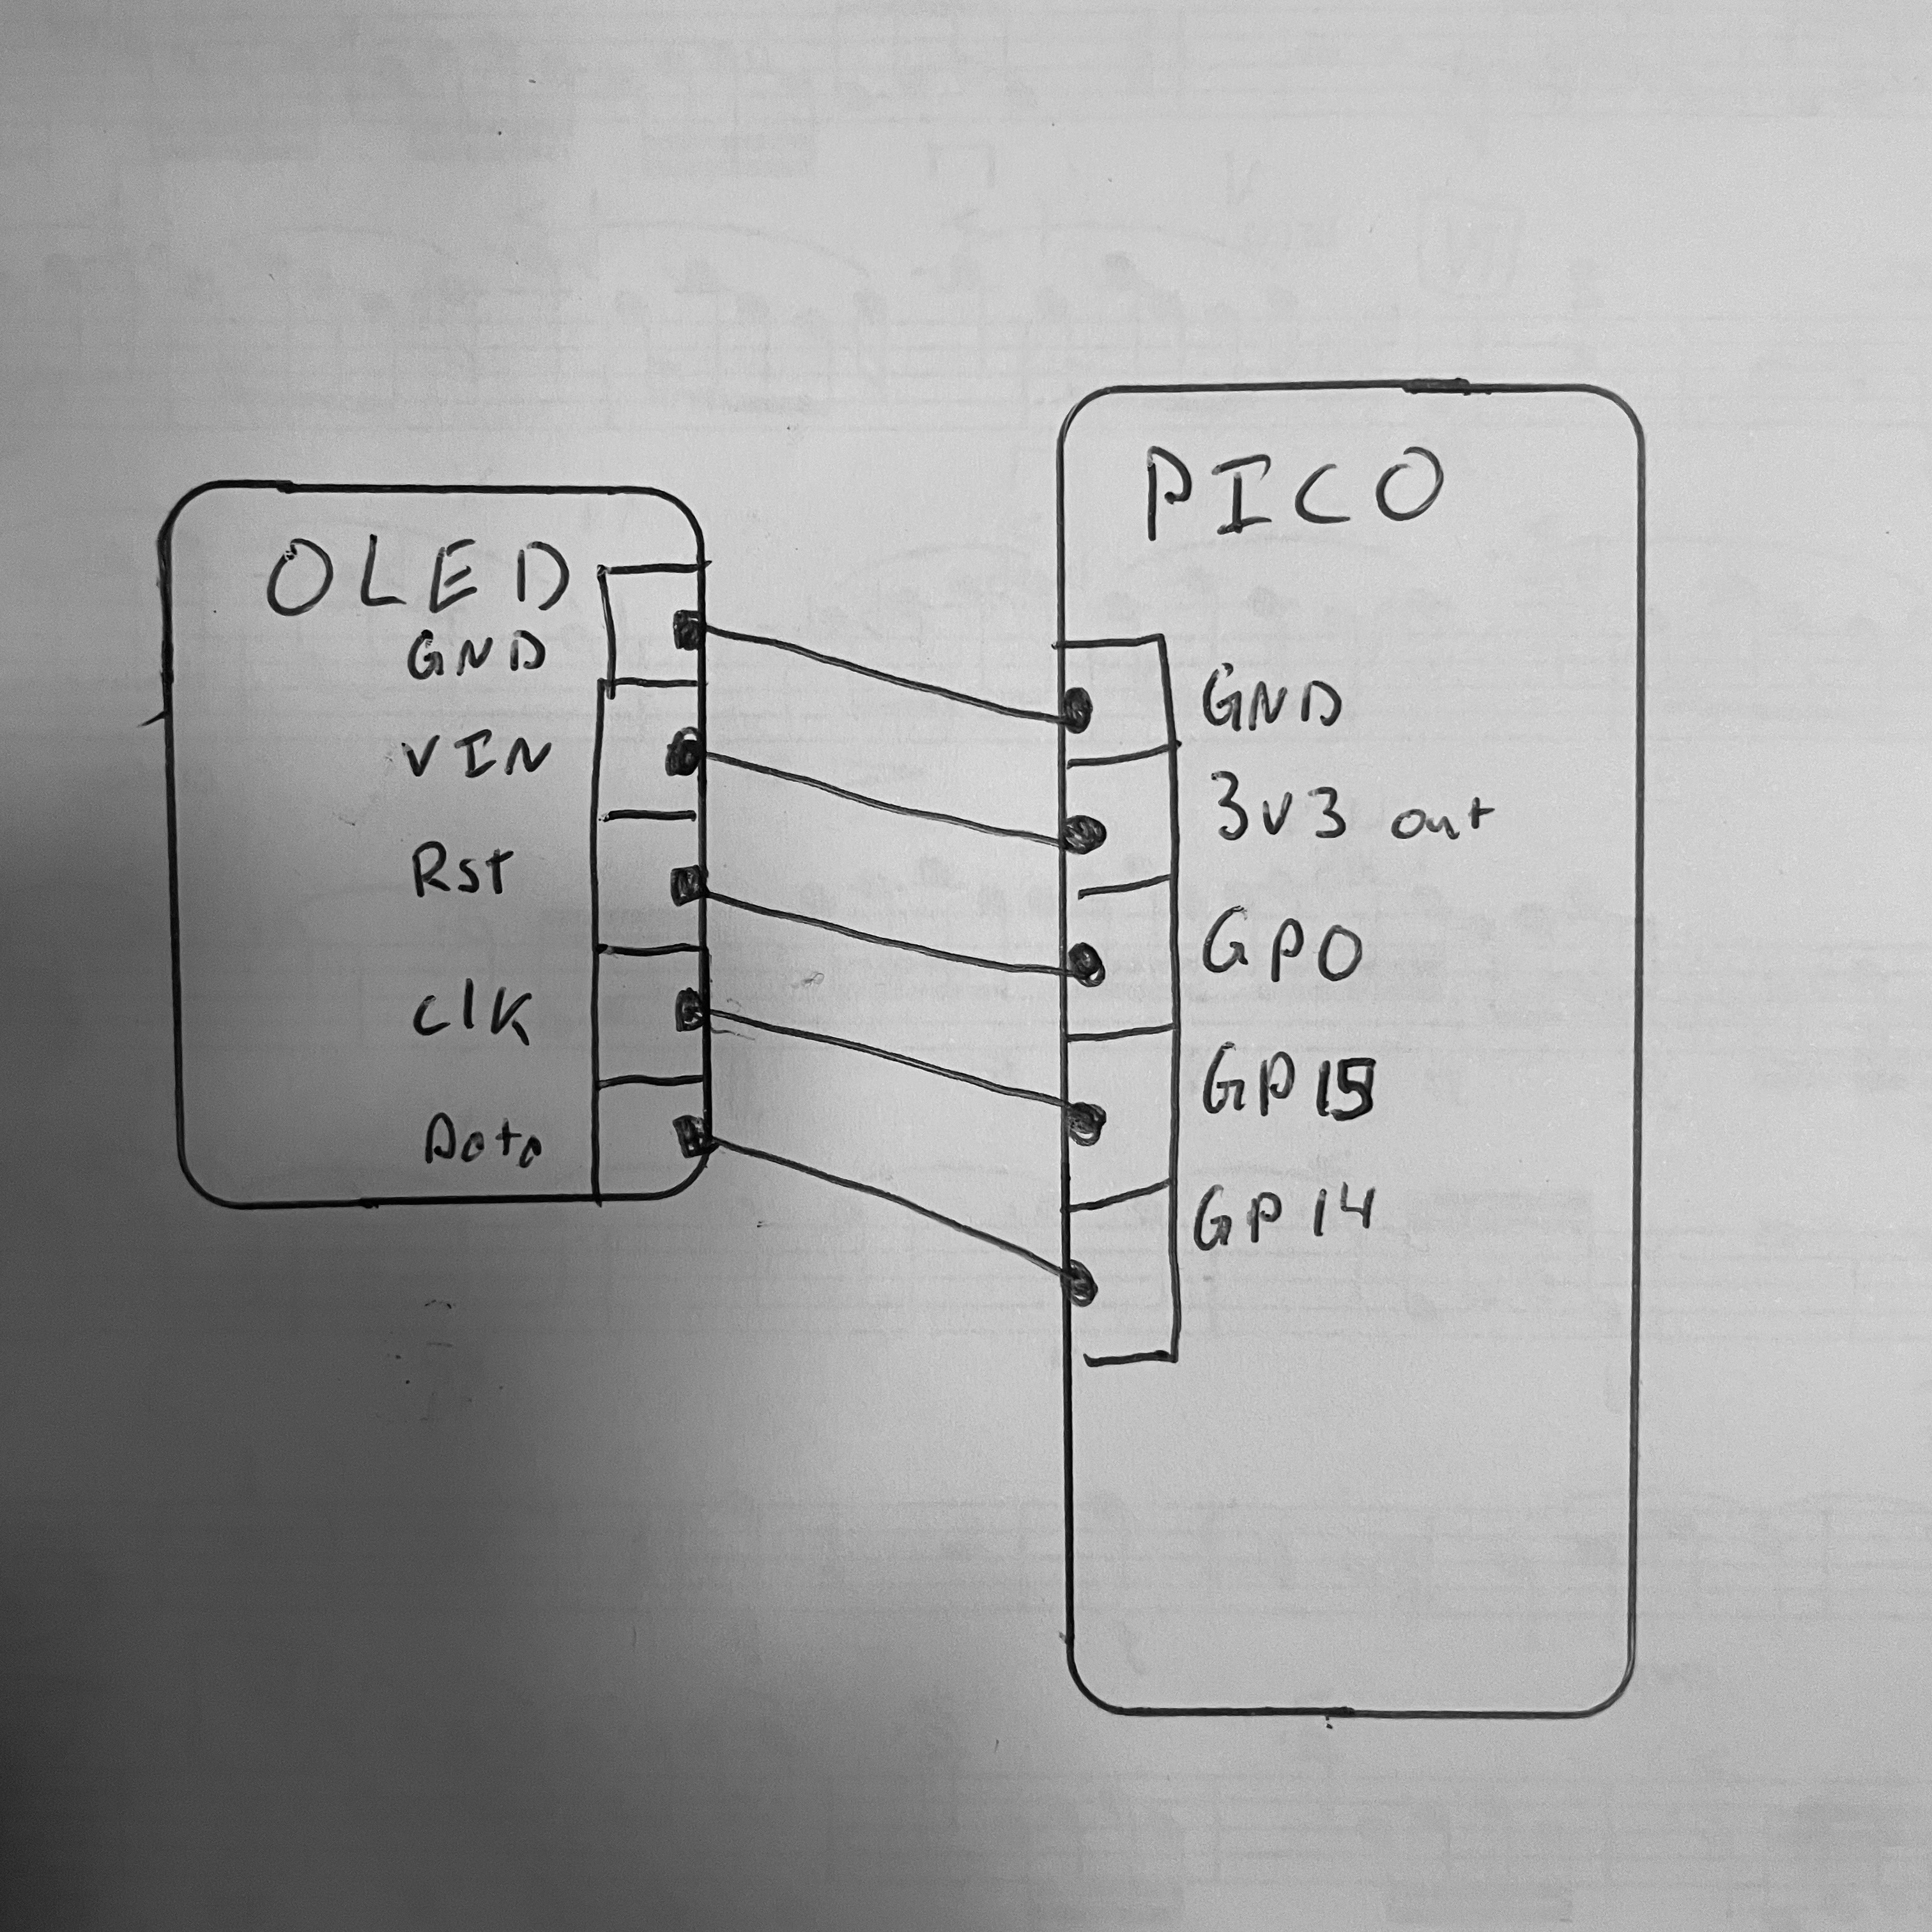 OLED
GND
VIN
Rst
ClK
Data
PICO
GND
3v3 out
GP0
GP15
GP14